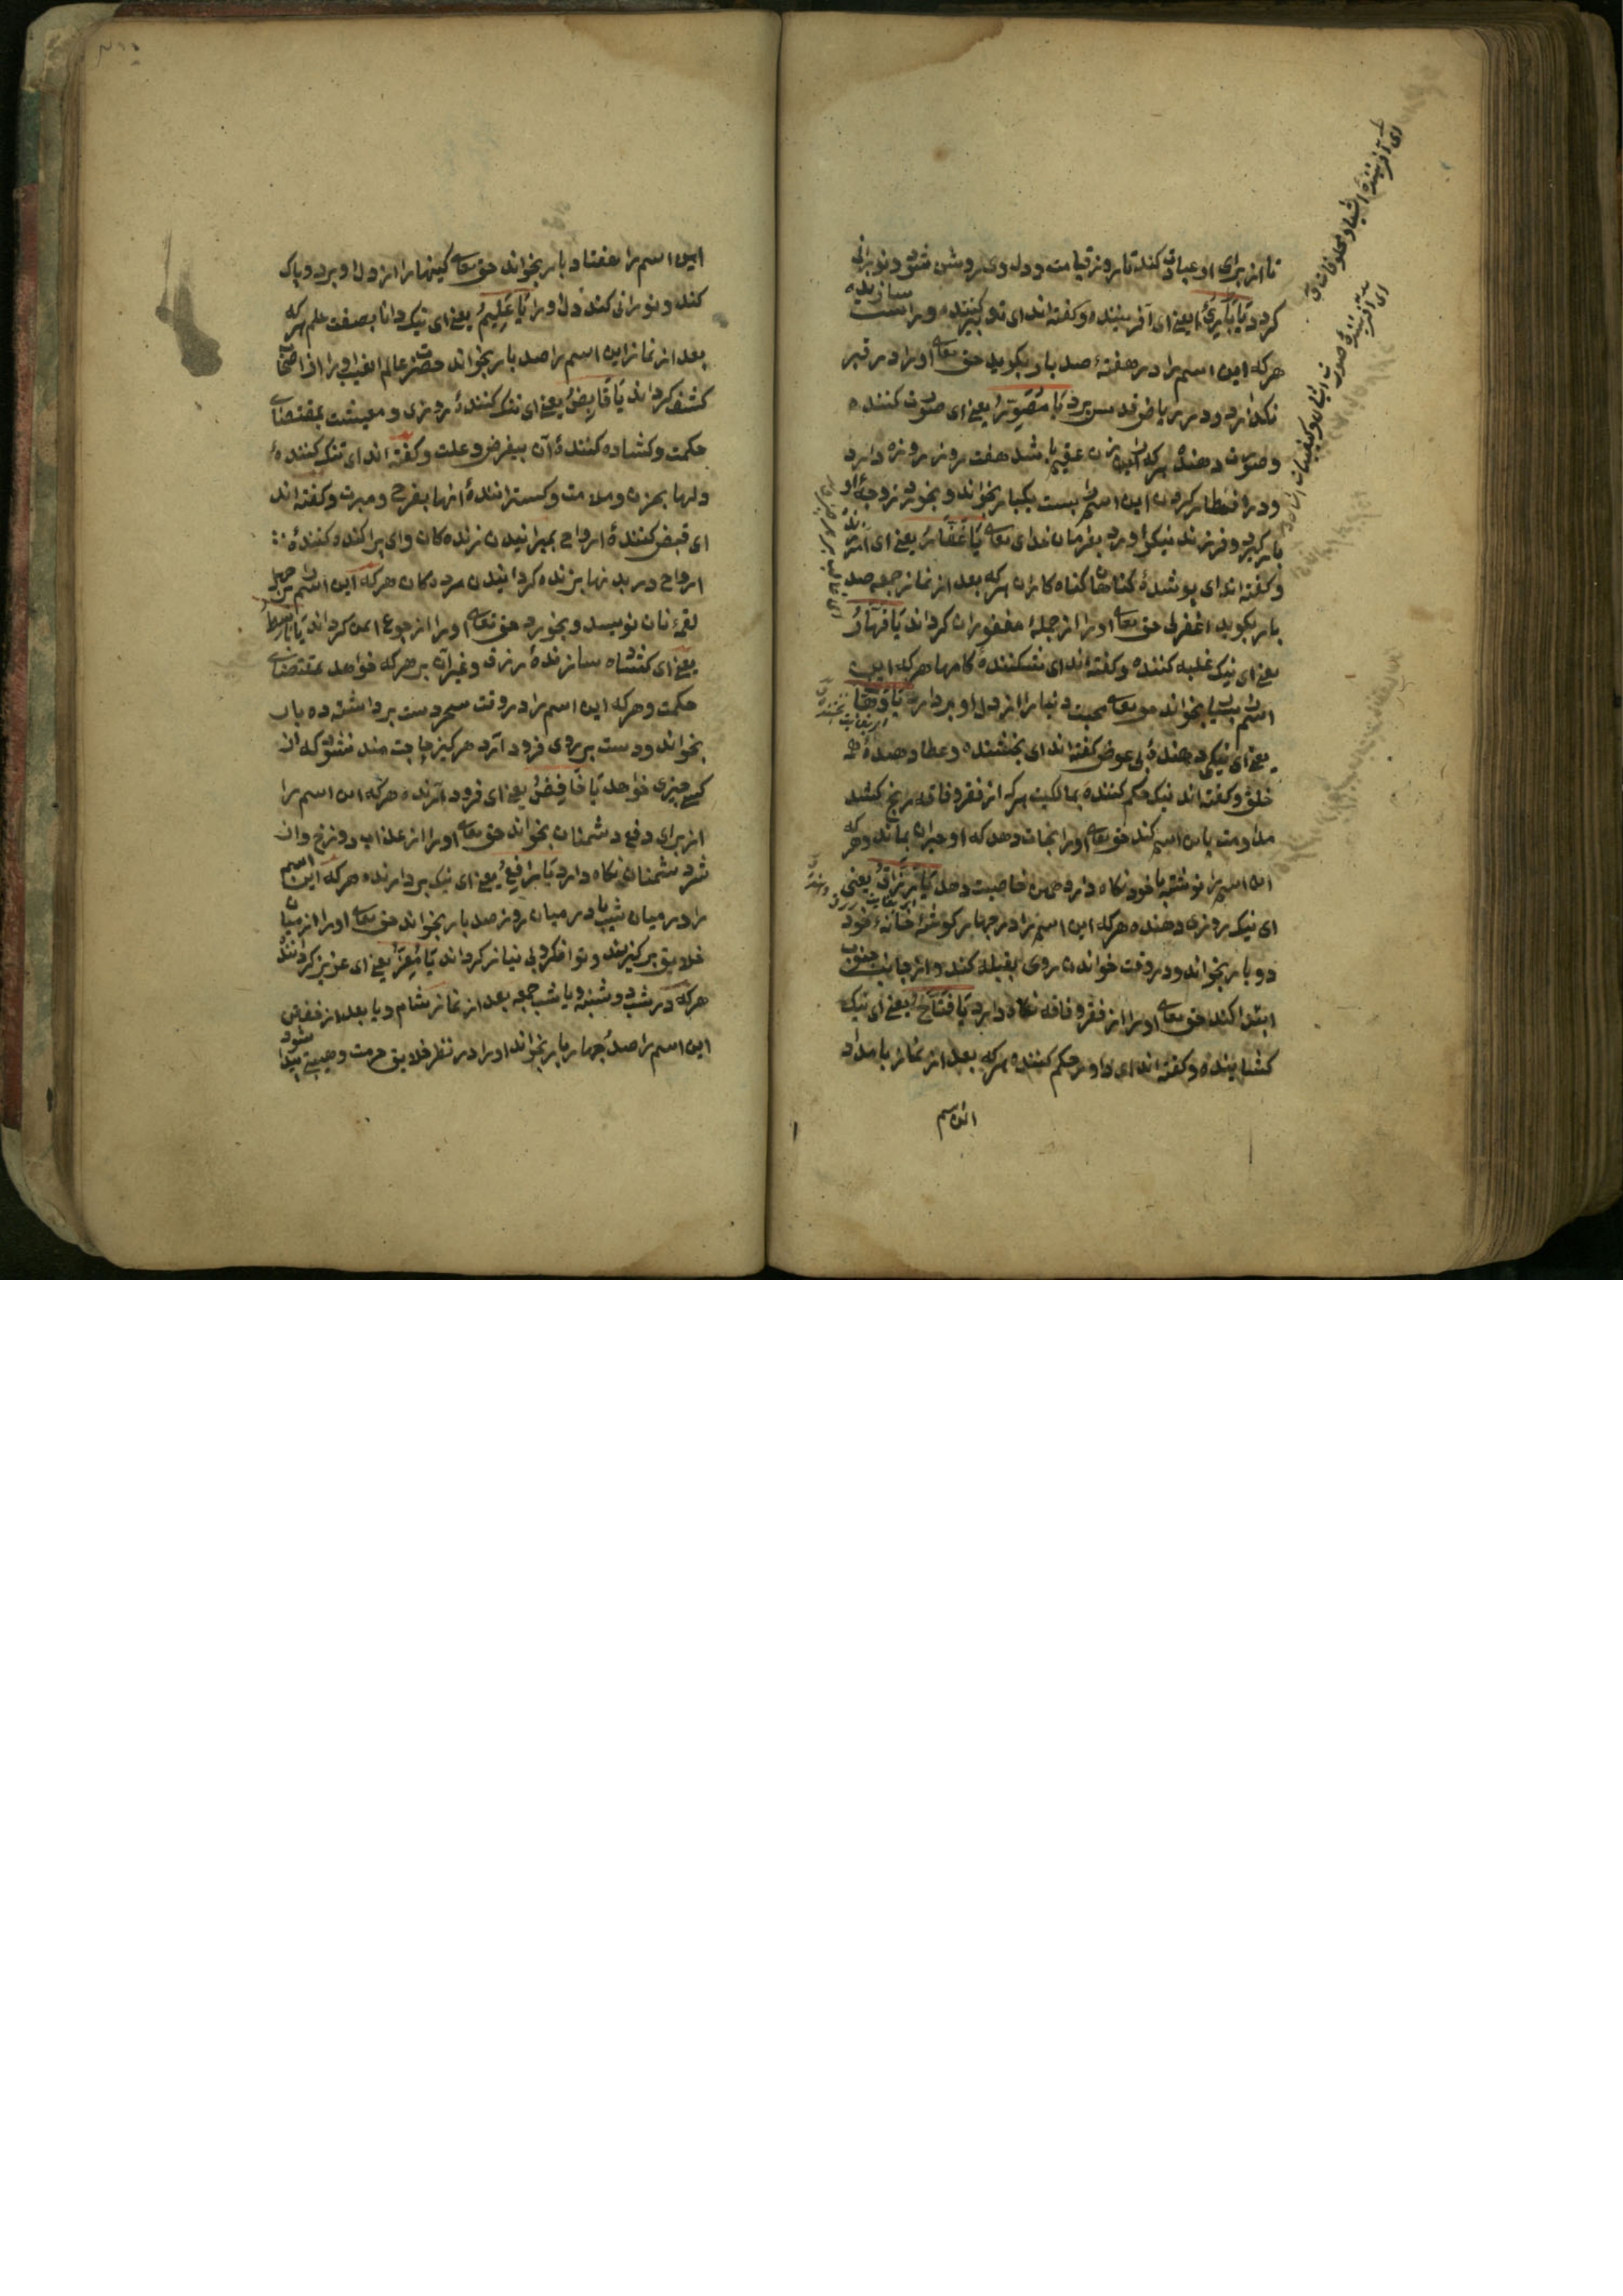 تا از برای او عبادت کند تا روز قیامت و دل وی روشن شود و نورانی
کردد یَا بَارِئُ یعنی ای آفریننده و کفته‌اند ای تدبیر کننده و راست سازنده
هرکه این اسم را در هفتهٔ صد بار بکوید حق تعالی او را در قبر
نکذارد و در ریاض قدس برد یَا مُصَوِّرُ یعنی ای صورت کننده
و صورت دهنده هرکه را زن عقیم باشد هفت روز روزه دارد
و در افطار کردن این اسم را بست یکبار بخواند و بخورد زوجهٔ او
بار کیرد و فرزند نیکو اورد بفرمان خدای تعالی یَا غَفَّارُ یعنی ای
و کفته‌اند ای پوشندهٔ کناهان کناه کاران هرکه بعد از نماز جمعه صد
بار بکوید اغفرلی حق تعالی او را از جملهٔ مغفوران کرداند یَا قَهَّارُ
یعنی ای نیک غلبه کننده و کفته‌اند ای شکننده کامها هرکه این
اسم را بسیار بخواند حق تعالی محبت دنیا را از دل او بردارد یَا وَهَّابُ
یعنی ای نیکی دهندهٔ بی عوض کفته‌اند ای بخشنده و عطا دهندهٔ همه
خلق و کفته‌اند نیک حکم کننده بمالکیت هرکه از فقر و فاقه رنج کشد
مداومت باین اسم کند حق تعالی او را نجات دهد که او حیران بماند و هرکه
این اسم را نوشته با خود نکاه دارد همین خاصیت دهد یَا رَزَّاقُ یعنی
ای نیک روزی دهنده هرکه این اسم را در چهار کوشهٔ خانهٔ خود
دو بار بخواند و در وقت خواندن روی بقبله کند و از جانب جنوب
ابتدا کند حق تعالی او را از فقر و فاقه نکاه دارد یَا فَتَّاحُ یعنی ای نیک
کشاینده و کفته‌اند ای داور حکم کننده هرکه بعد از نماز بامداد
این اسم
ای آفرینندهٔ اشیاء و مخلوقات
ای آفرینندهٔ صورت
این اسم را هفتاد بار بخواند حق تعالی کینها را از دل او برد و پاک
کند و نورانی کند دل او را یَا عَلِیمُ یعنی ای نیک دانا بصفت علم هرکه
بعد از نماز این اسم را صد بار بخواند حضرت عالم الغیب او را از اصحاب
کشف کرداند یَا قَابِضُ یعنی ای تنک کنندهٔ روزی و معیشت بمقتضای
حکمت و کشاده کنندهٔ آن بیغرض و علت و کفته‌اند ای تنک کنندهٔ
دلها بحزن و ملامت و کسترانندهٔ انها بفرح و مبرت و کفته‌اند
ای قبض کنندهٔ ارواح بمیرانیدن زنده‌کان و ای پراکنده کنندهٔ
ارواح در بدنها بزنده کردانیدن مرده‌کان هرکه این اسم را بر چهل
لقمهٔ نان نویسد و بخورد حق تعالی او را از جوع ایمن کرداند یَا بَاسِطُ
یعنی ای کشاده سازندهٔ رزق و غیر آن بر هرکه خواهد بمقتضای
حکمت و هرکه این اسم را در وقت سحر دست برداشته ده بار
بخواند و دست بر روی فرود آرد هرکز حاجت مند نشود که از
کسی چیزی خواهد یَا خَافِضُ یعنی ای فرود آرنده هرکه این اسم را
از برای دفع دشمنان بخواند حق تعالی او را از عذاب دوزخ و از
شر دشمنان نکاه دارد یَا رَافِعُ یعنی ای نیک بردارنده هرکه این اسم
را در میان شب یا در میان روز صد بار بخواند حق تعالی او را از میان
خلایق برکزیند و توانکر و بی نیاز کرداند یَا مُعِزُّ یعنی ای عزیز کرداننده
هرکه در شب دوشنبه و یا شب جمعه بعد از نماز شام و یا بعد از خفتن
این اسم را صد چهار بار بخواند او را در نظر خلایق حرمت و هیبتی پیدا شود